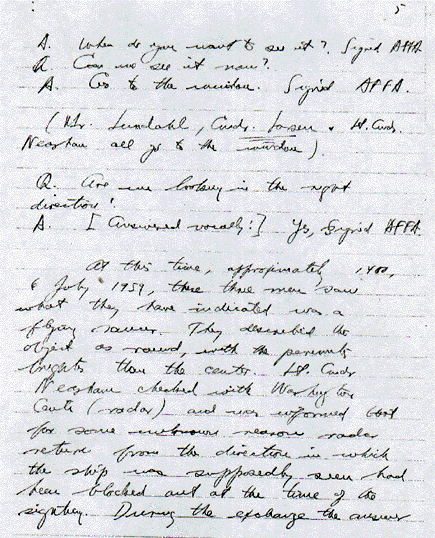 5
A. When do you want to see it? Signed AFFA
Q. Can we see it now?
A. Go to the window. Signed AFFA.
(Mr. Lundahl, Cmdr. Larsen & Lt. Cmdr.
Neasham all go to the window).
Q. Are we looking in the right
direction?
A. [Answered vocally!] Yes, Signed AFFA.
At this time, approximately 1400,
6 July 1959, these three men saw
what they have indicated was a
flying saucer. They described the
object as round, with the perimeter
brighter than the center. Lt. Cmdr
Neasham checked with Washington
Center (radar) and was informed that
for some unknown reason radar
return from the direction in which
the ship was supposedly seen had
been blocked out at the time of the
sighting. During the exchange the answer